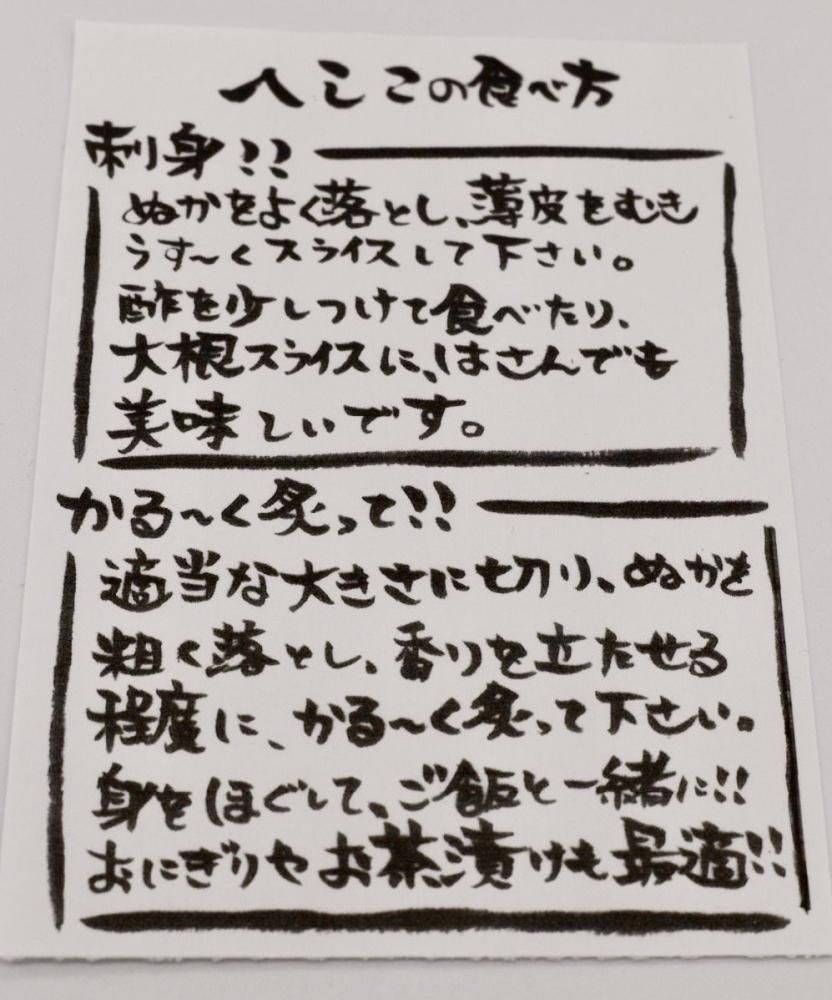 へしこの食べ方
刺身!!
ぬかをよく落とし、薄皮をむき
うす〜くスライスして下さい。
酢を少しつけて食べたり、
大根スライスに、はさんでも
美味しいです。
かる〜く炙って!!
適当な大きさに切り、ぬかを
粗く落とし、香りを立たせる
程度に、かる〜く炙って下さい。
身をほぐして、ご飯と一緒に!!
おにぎりやお茶漬けも最適!!